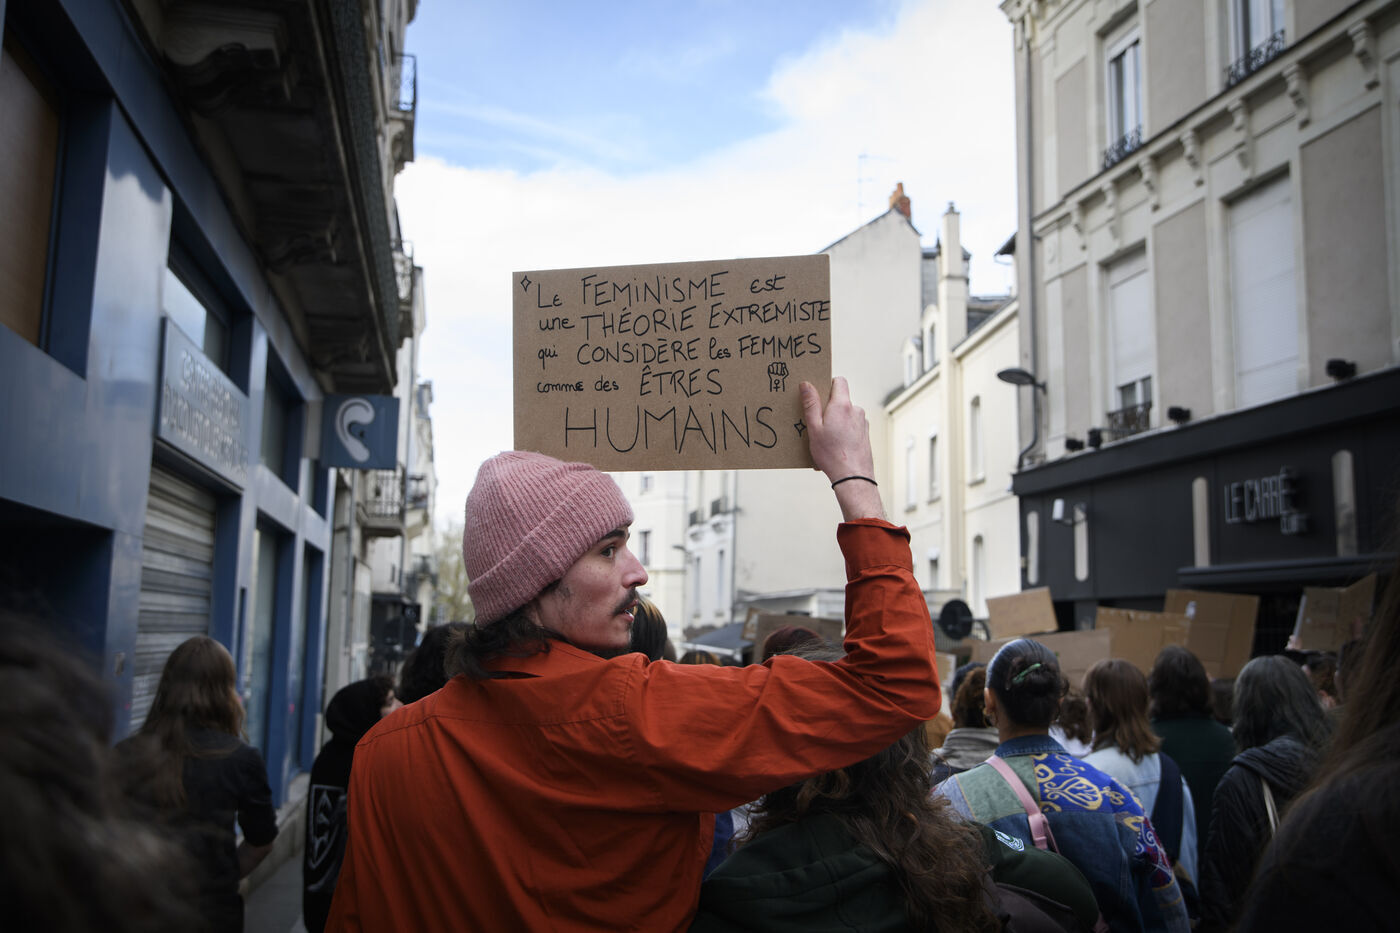 Le FEMINISME est
une THÉORIE EXTREMISTE
qui CONSIDÈRE les FEMMES
comme des ÊTRES
HUMAiNS
LE CARRÉ